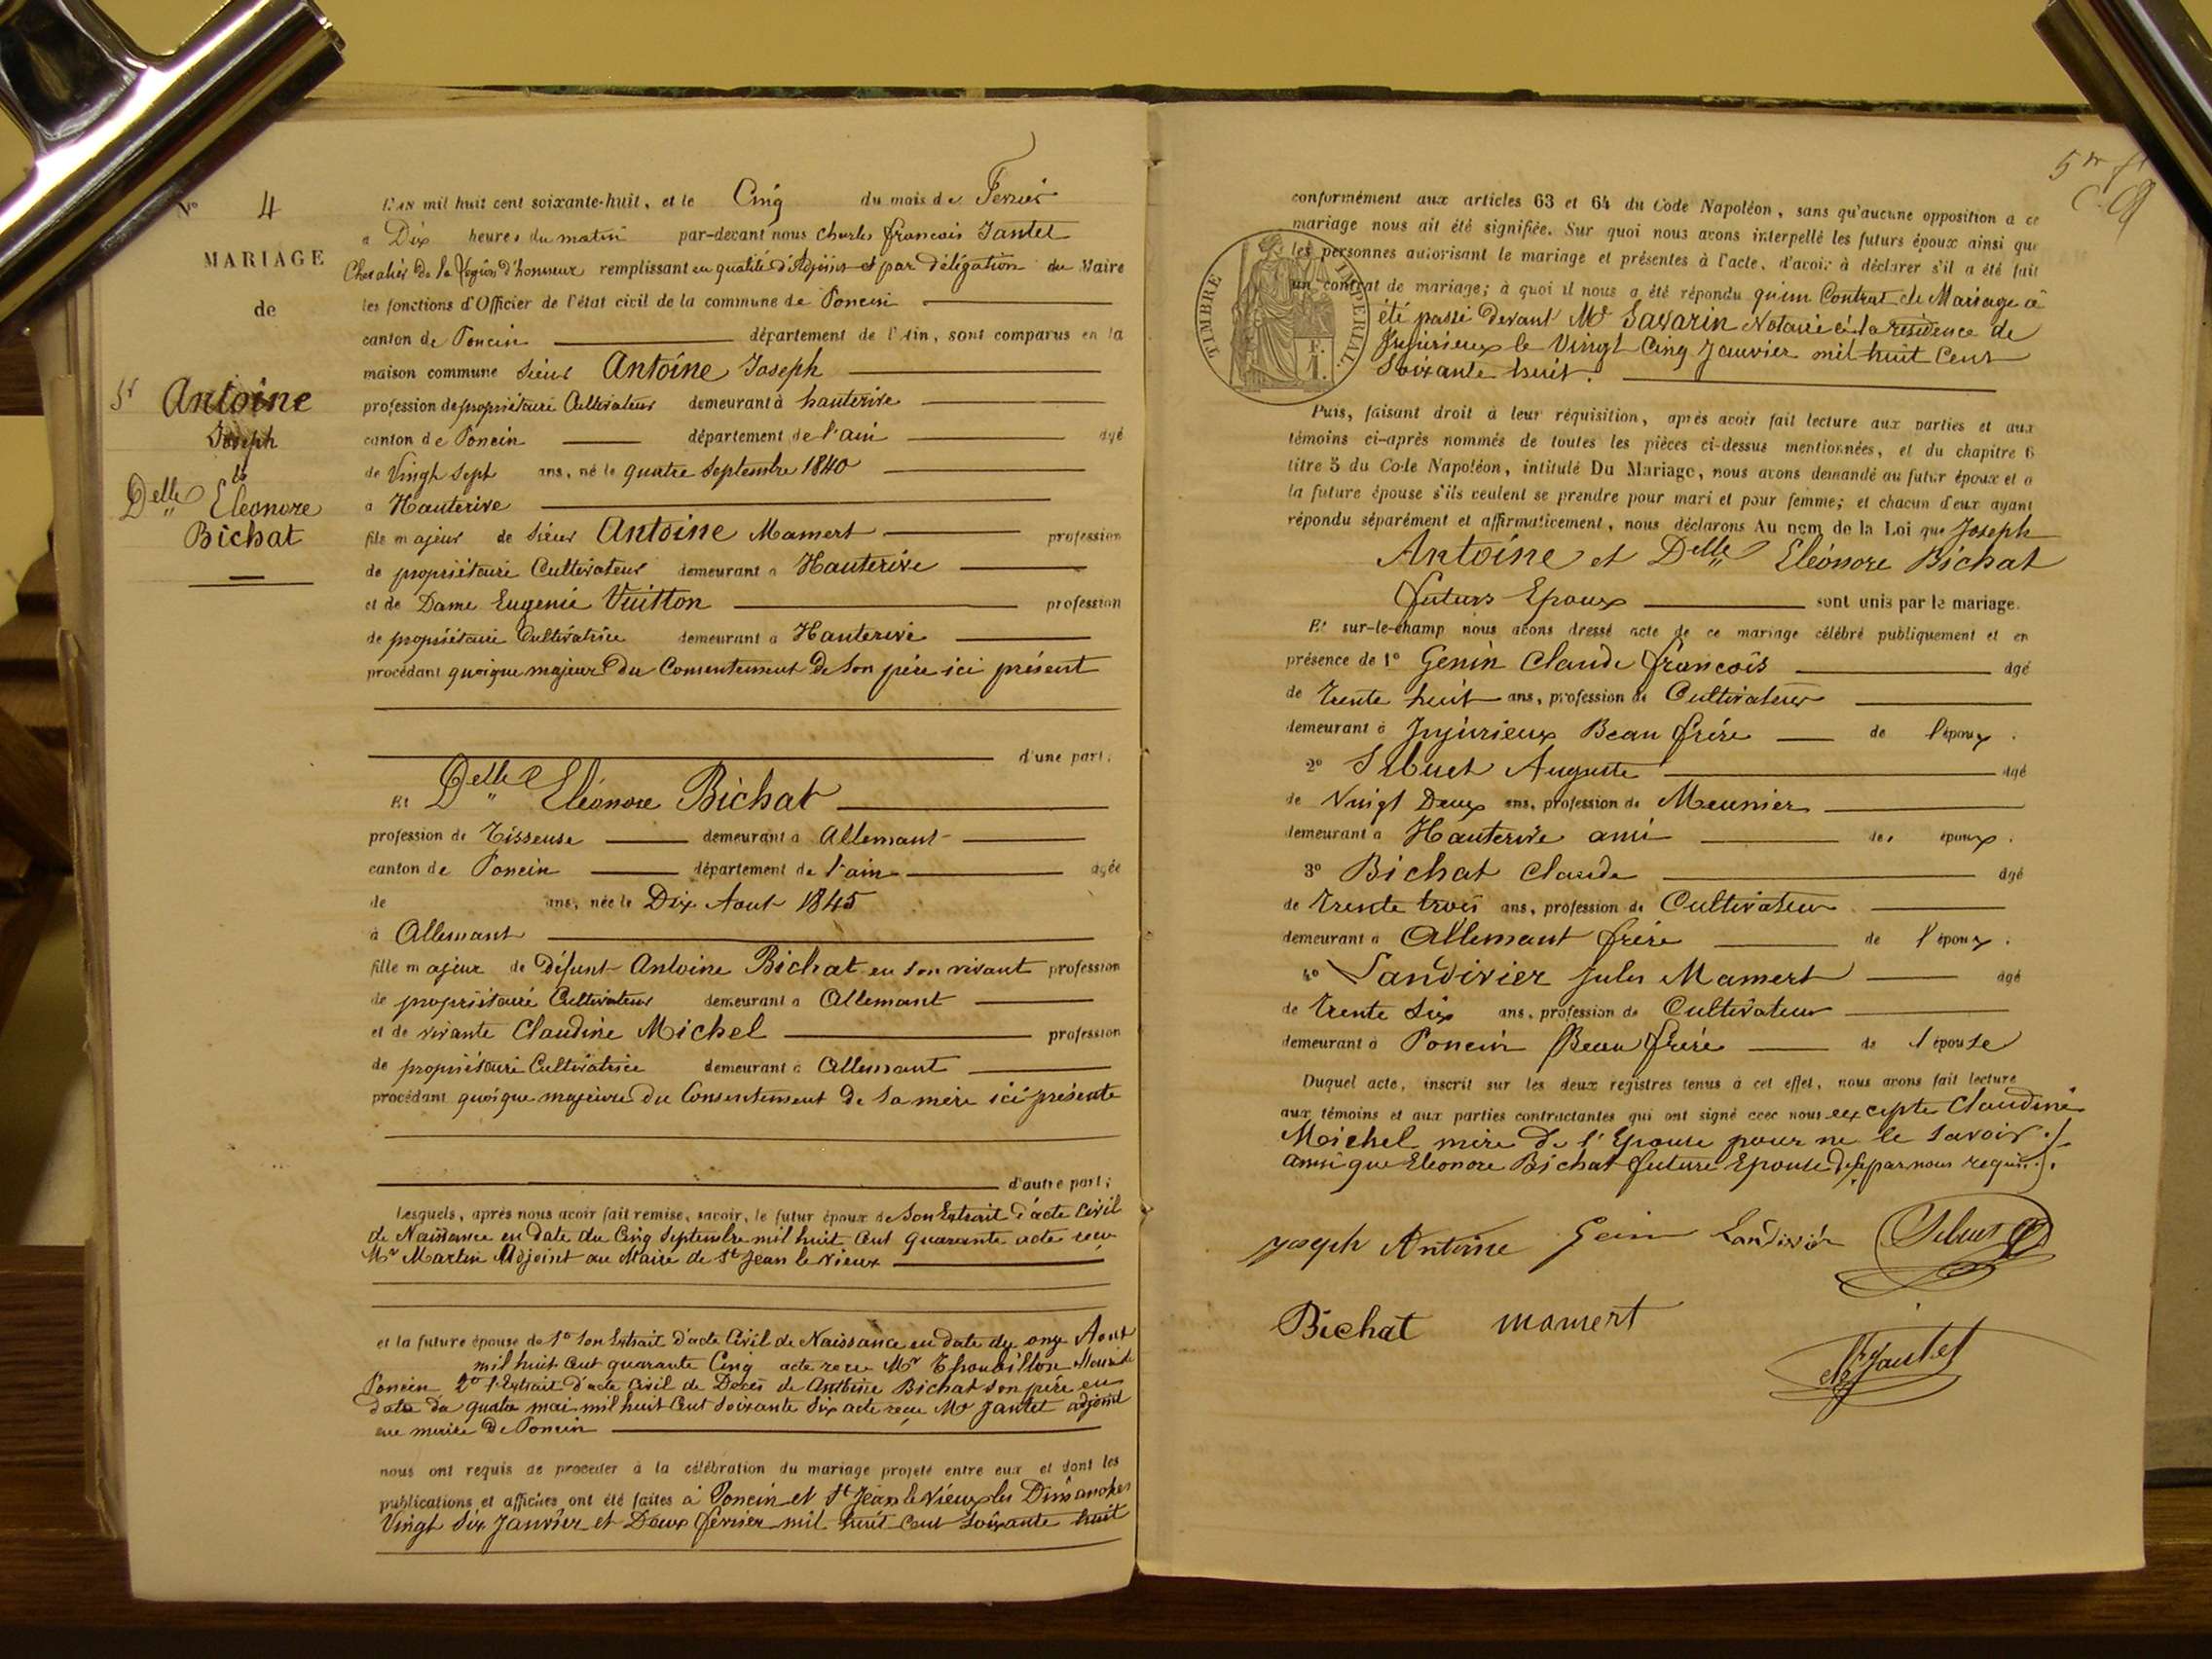 N° 4
MARIAGE
de
Sr Antoine
Joseph
&
Delle Eleonore
Bichat
L'AN mil huit cent soixante-huit, et le Cinq du mois de Fevrier
a Dix heures du matin par-devant nous Charles francois Jantet
Chevalier de la Légion d'honneur remplissant en qualité d'Adjoint et par délégation du Maire
les fonctions d'Officier de l'état civil de la commune de Poncin
canton de Poncin département de l'Ain, sont comparus en la
maison commune Sieur Antoine Joseph
profession de propriétaire Cultivateur demeurant à hauterive
canton de Poncin département de l'ain âgé
de Vingt Sept ans, né le quatre Septembre 1840
a Hauterive
fils majeur de Sieur Antoine Mamert profession
de propriétaire Cultivateur demeurant a Hauterive
et de Dame Eugenie Vuitton profession
de propriétaire Cultivatrice demeurant a Hauterive
procédant quoique majeur du Consentement de Son père ici présent
d'une part,
Et Delle Eléonore Bichat
profession de Tisseuse demeurant a Allemant
canton de Poncin département de l'ain âgée
de ans, née le Dix Aout 1845
à Allemant
fille majeur de Défunt Antoine Bichat en son vivant profession
de propriétaire Cultivateur demeurant a Allemant
et de vivante Claudine Michel profession
de propriétaire Cultivatrice demeurant a Allemant
procédant quoique majeure du Consentement de Sa mère ici présente
d'autre part;
Lesquels, après nous avoir fait remise, savoir, le futur époux de Son Extrait d'acte Civil
de Naissance en date du Cinq Septembre mil huit Cent quarante acte reçu
Mr Martin Adjoint au Maire de St Jean le Vieux
et la future épouse de 1° Son Extrait d'acte Civil de Naissance en date du onze Aout
mil huit Cent quarante Cinq acte reçu Mr
Poncin 2° l'Extrait d'acte Civil de Décès de Antoine Bichat son père en
date du quatre mai mil huit Cent Soixante Six acte reçu Mr Jantet adjoint
au maire De Poncin
nous ont requis de procéder à la célébration du mariage projeté entre eux et dont les
publications et affiches ont été faites à Poncin et St Jean le Vieux les Dimanches
Vingt Six Janvier et Deux février mil huit Cent Soixante huit
conformément aux articles 63 et 64 du Code Napoléon, sans qu'aucune opposition a ce
mariage nous ait été signifiée. Sur quoi nous avons interpellé les futurs époux ainsi que
les personnes autorisant le mariage et présentes à l'acte, d'avoir à déclarer s'il a été fait
un contrat de mariage; à quoi il nous a été répondu qu'un Contrat de Mariage a
été passé devant Me Savarin Notaire à la résidence de
Jujurieux le Vingt Cinq Janvier mil huit Cent
Soixante huit.
TIMBRE IMPERIAL
Puis, faisant droit à leur réquisition, après avoir fait lecture aux parties et aux
témoins ci-après nommés de toutes les pièces ci-dessus mentionnées, et du chapitre 6
titre 5 du Code Napoléon, intitulé Du Mariage, nous avons demandé au futur époux et a
la future épouse s'ils veulent se prendre pour mari et pour femme; et chacun d'eux ayant
répondu séparément et affirmativement, nous déclarons Au nom de la Loi que Joseph
Antoine et Delle Eléonore Bichat
futurs Epoux sont unis par le mariage.
Et sur-le-champ nous avons dressé acte de ce mariage célébré publiquement et en
présence de 1° Genin Claude françois âgé
de Trente huit ans, profession de Cultivateur
demeurant à Jujurieux Beau frère de l'époux.
2° Sibuet Auguste âgé
de Vuigt Deux ans, profession de Meunier
demeurant a Hauterive ami des époux.
3° Bichat Claude âgé
de Trente trois ans, profession de Cultivateur
demeurant a Allemant frère de l'époux.
4° Landivier Jules Mamert âgé
de Trente Six ans, profession de Cultivateur
demeurant à Poncin Beau frère de l'épouse
Duquel acte, inscrit sur les deux registres tenus à cet effet, nous avons fait lecture
aux témoins et aux parties contractantes qui ont signé avec nous excepte Claudine
Michel mère de l'Epouse pour ne le Savoir
ainsi que Eleonore Bichat future Epouse par nous requis
joseph Antoine Genin Landivier Sibuet
Bichat mamert
Jantet